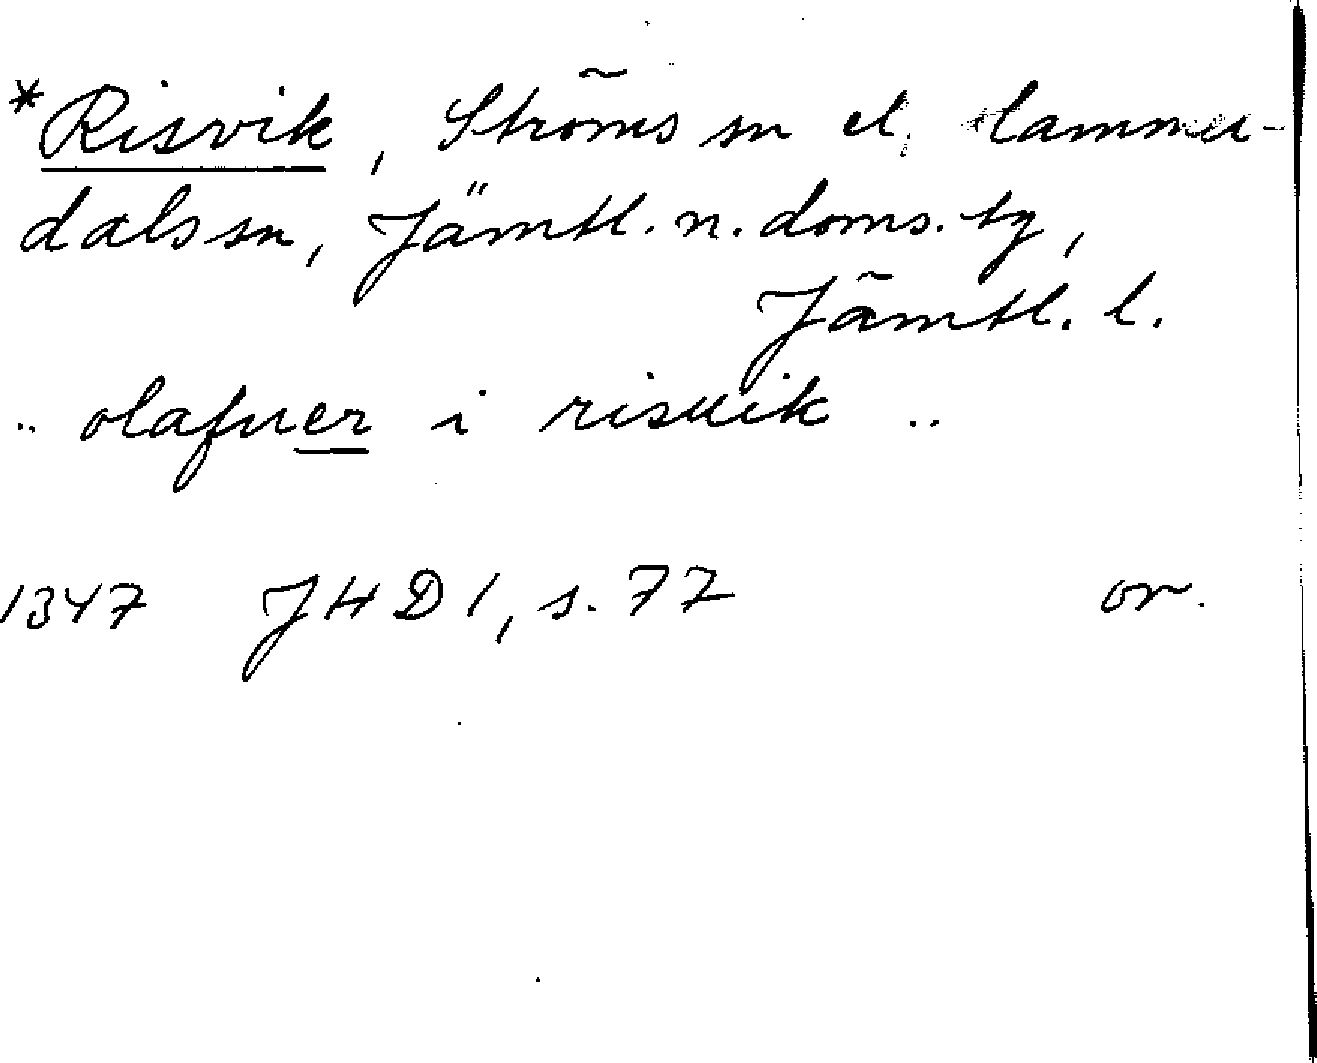 *Risvik, Ströms sn el. Hammer-
dals sn, Jämtl. n. doms. tg,
Jämtl. l.
.. olafuer i risuik ..
1347 JHD 1, s. 77 or.